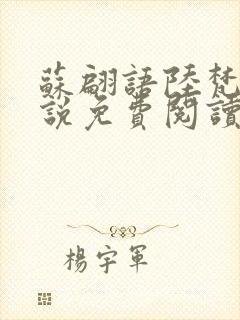 蘇翩語陸梵
說免費閱讀
楊宇軍